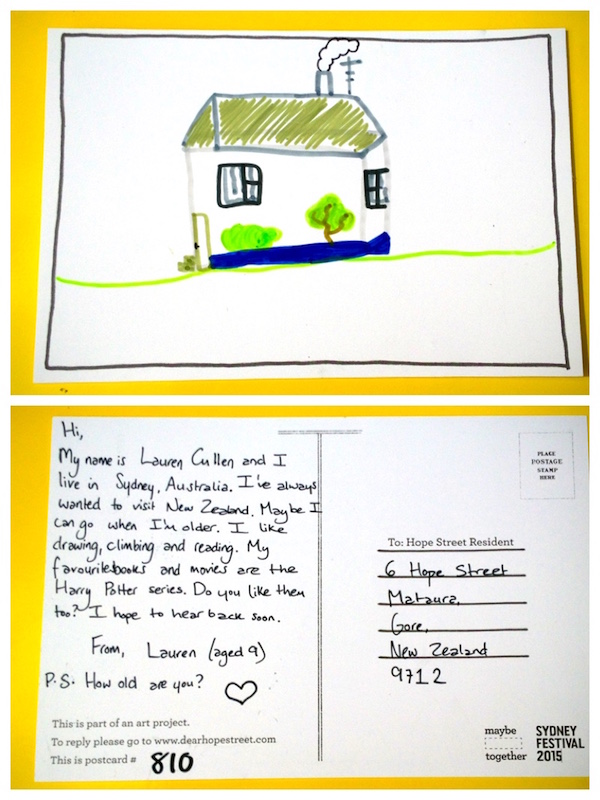 Hi,
My name is Lauren Cullen and I
live in Sydney, Australia. I've always
wanted to visit New Zealand. Maybe I
can go when I'm older. I like
drawing, climbing and reading. My
favourite books and movies are the
Harry Potter series. Do you like them
too? I hope to hear back soon.
From, Lauren (aged 9)
P.S. How old are you?
This is part of an art project.
To reply please go to www.dearhopestreet.com
This is postcard # 810
PLACE
POSTAGE
STAMP
HERE
To: Hope Street Resident
6 Hope Street
Mataura,
Gore,
New Zealand
9712
maybe
together
SYDNEY
FESTIVAL
2015